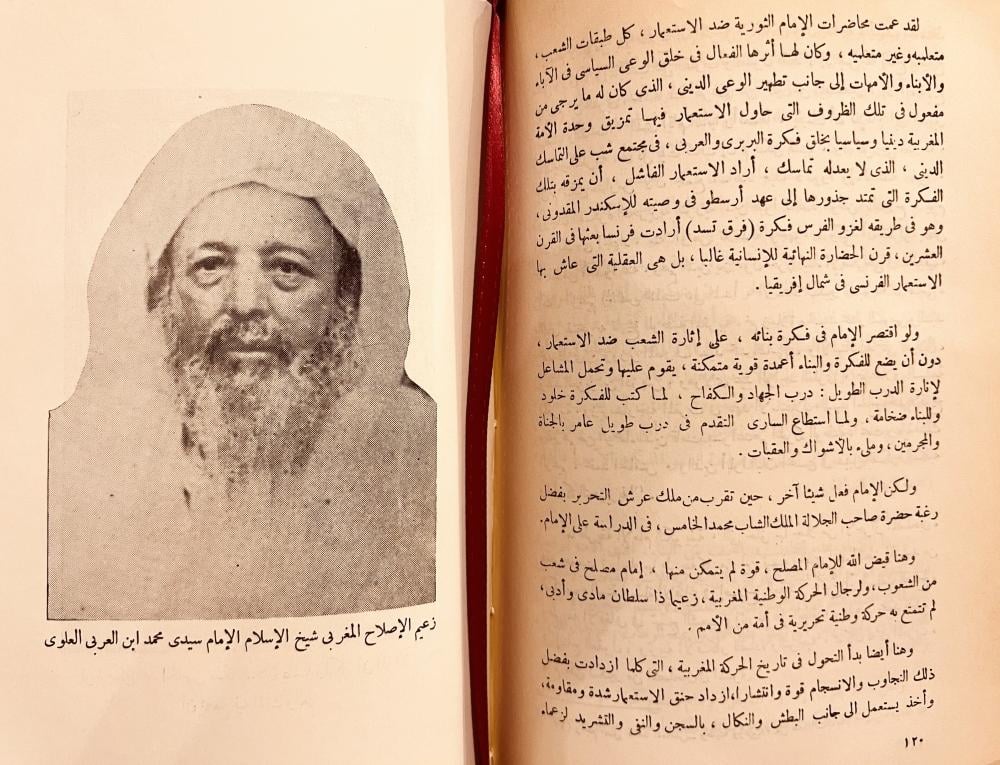 لقد عمت محاضرات الإمام الثورية ضد الاستعمار ، كل طبقات الشعب ،
متعلميه وغير متعلميه ، وكان لهـا أثرها الفعال فى خلق الوعى السياسى فى الآباء
والأبناء والأمهات إلى جانب تطهير الوعى الدينى ، الذى كان له ما يرجى من
مفعول فى تلك الظروف التى حاول الاستعمار فيهـا تمزيق وحدة الأمة
المغربية دينيا وسياسيا بخلق فكرة البربرى والعربى ، فى مجتمع شب على التماسك
الدينى ، الذى لا يعدله تماسك ، أراد الاستعمار الفاشل ، أن يمزقه بتلك
الفكرة التى تمتد جذورها إلى عهد أرسطو فى وصيته للإسكندر المقدونى ،
وهو فى طريقه لغزو الفرس فكرة (فرق تسد) أرادت فرنسا بعثها فى القرن
العشرين ، قرن الحضارة النهائية للإنسانية غالبا ، بل هى العقلية التى عاش بها
الاستعمار الفرنسى فى شمال إفريقيا .
ولو اقتصر الإمام فى فكرة بنائه ، على إثارة الشعب ضد الاستعمار ،
دون أن يضع للفكرة والبناء أعمدة قوية متمكنة ، يقوم عليها وتحمل المشاعل
لإنارة الدرب الطويل : درب الجهاد والكفاح ، لمـا كتب للفكرة خلود
وللبناء ضخامة ، ولمـا استطاع السارى التقدم فى درب طويل عامر بالجناة
والمجرمين ، وملىء بالأشواك والعقبات .
ولكن الإمام فعل شيئا آخر ، حين تقرب من ملك عرش التحرير بفضل
رغبة حضرة صاحب الجلالة الملك الشاب محمد الخامس ، فى الدراسة على الإمام.
وهنا قيض الله للإمام المصلح ، قوة لم يتمكن منها ، إمام مصلح فى شعب
من الشعوب، ولرجال الحركة الوطنية المغربية ، زعيما ذا سلطان مادى وأدبى،
لم تتمتع به حركة وطنية تحريرية فى أمة من الأمم .
وهنا أيضا بدأ التحول فى تاريخ الحركة المغربية ، التى كلما ازدادت بفضل
ذلك التجاوب والانسجام قوة وانتشارا، ازداد حنق الاستعمار شدة ومقاومة،
وأخذ يستعمل الى جانب البطش والنكال ، بالسجن والنفى والتشريد لزعماء
١٢٠
زعيم الإصلاح المغربى شيخ الإسلام الإمام سيدى محمد ابن العربى العلوى